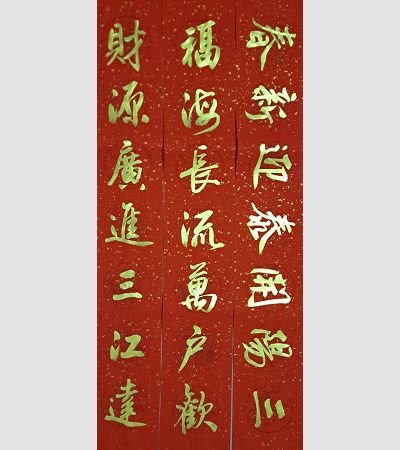 三陽開泰迎新春
福海長流萬户歡
財源廣進三江達